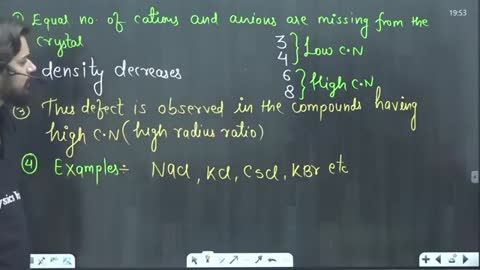 Equal no. of cations and anions are missing from the
crystal
3
4 } Low C.N
density decreases
6
8 } High C.N
③ This defect is observed in the compounds having
high C.N (high radius ratio)
④ Examples÷ NaCl, KCl, CsCl, KBr etc
19:53